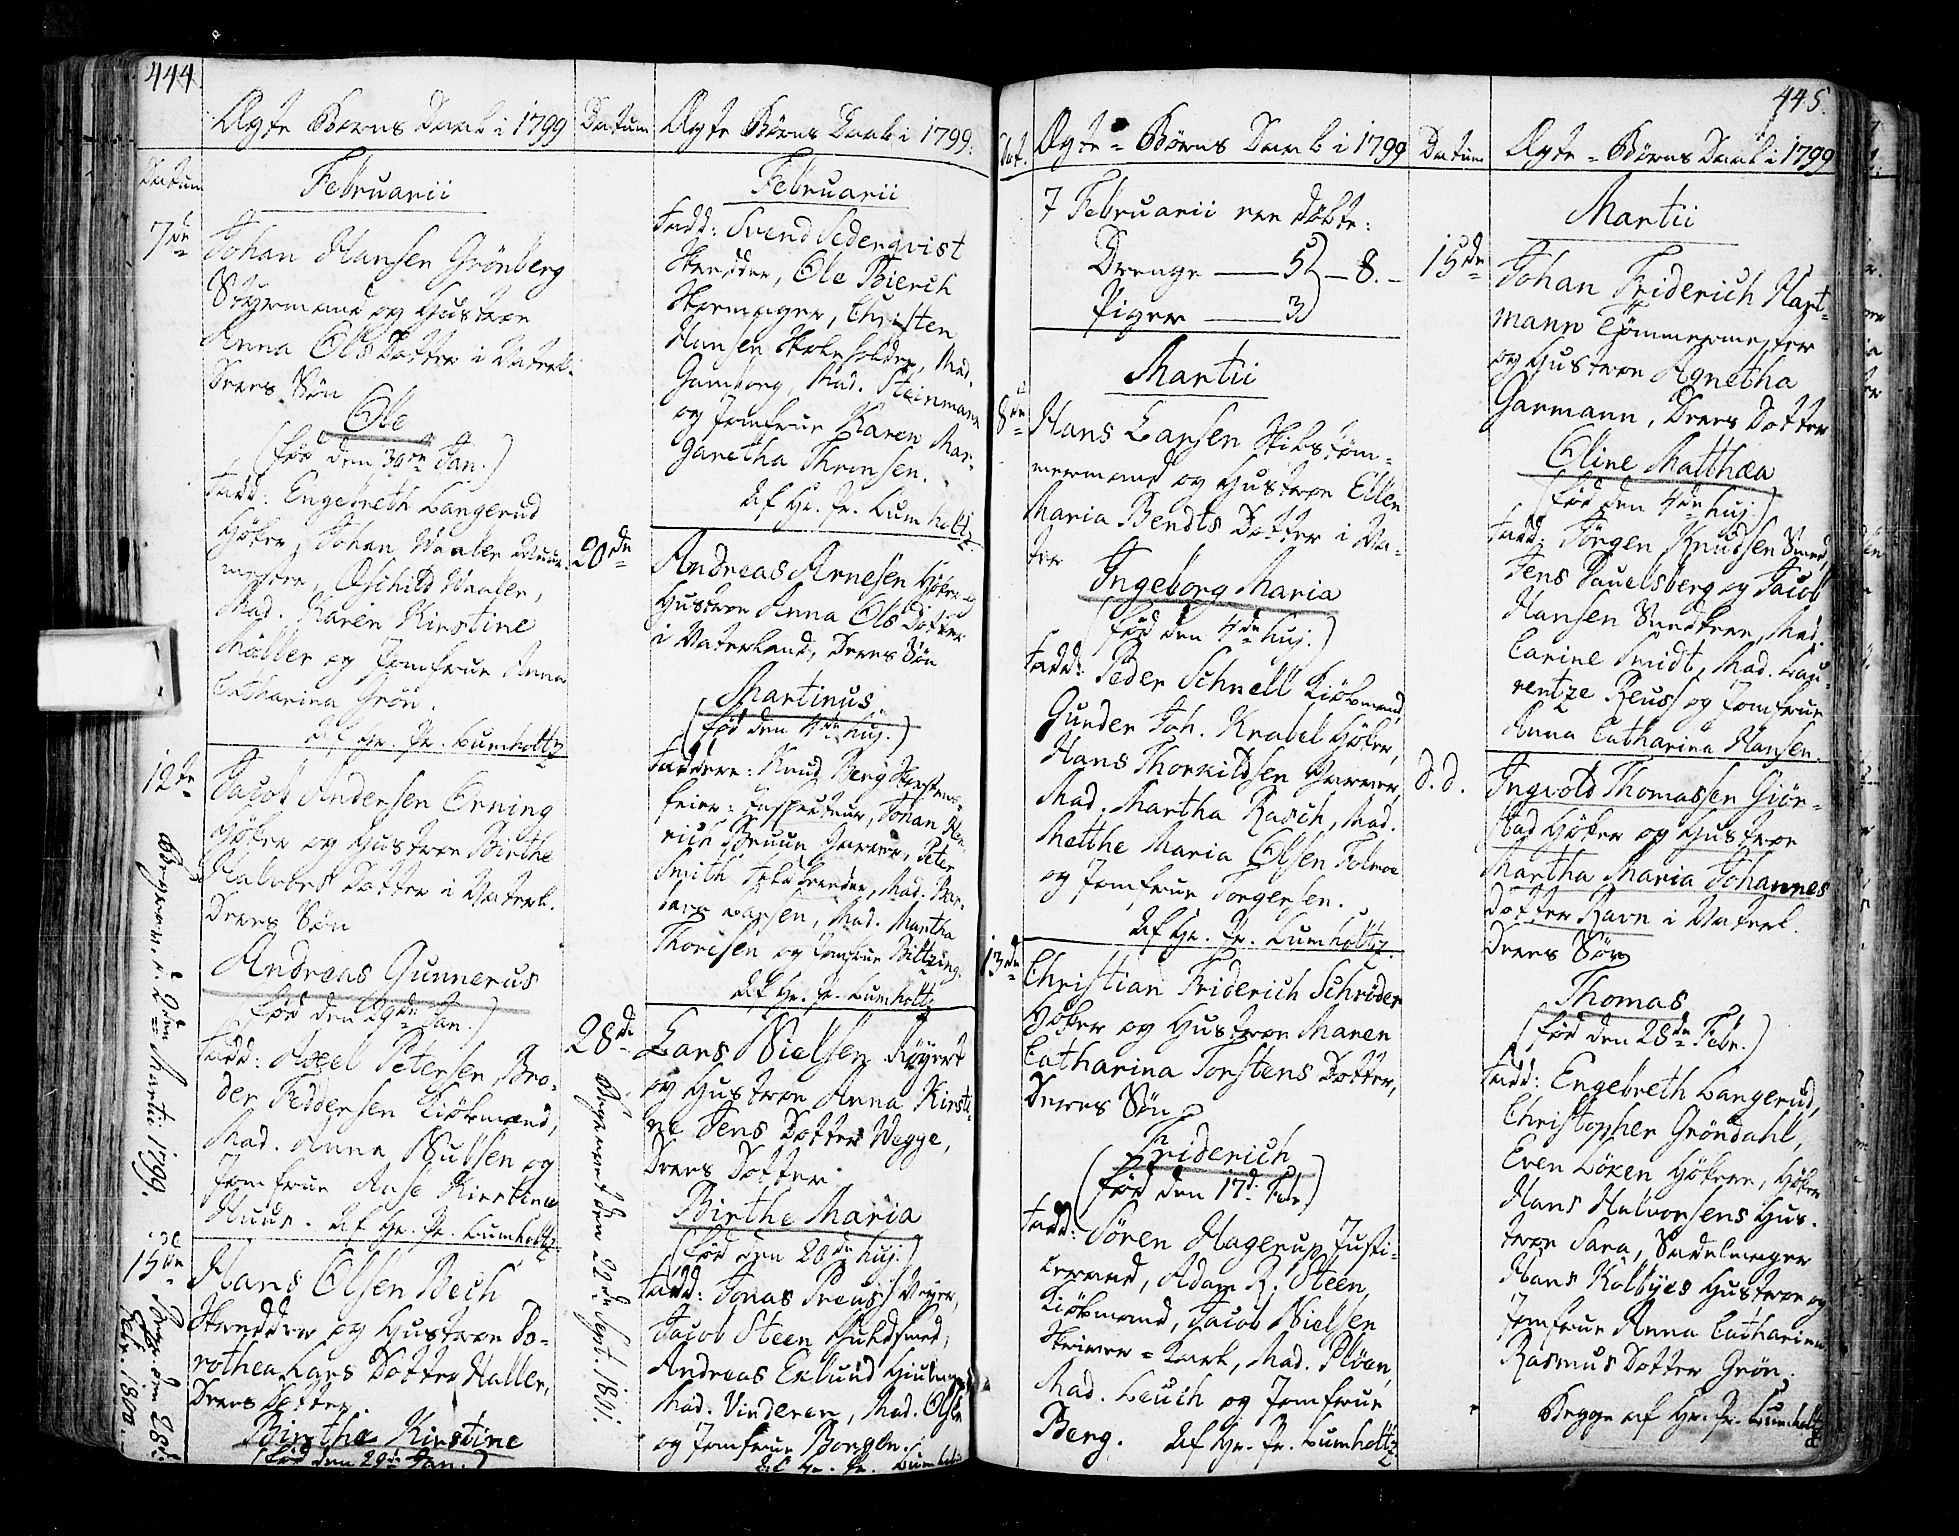 444.
Ægte Børns Daab i 1799
Datum
Februarii
7de
Johan Hansen Grönberg
Styrmand og Hustroe
Anna Ols Datter i Vaterl.
Deres Søn
Ole
(föd den 30te Jan.)
Fadd: Engebreth Langerud
Høker, Johan Waaler Muur-
mester, Eschild Waaler,
Mad. Karen Kirstine
Møller og Jomfrue Anna
Catharina Grön.
Af Hr. Pr. Lumholtz
12de
Jacob Andersen Örning
Höker og Hustroe Birthe
Halvors Datter i Vaterl.
Deres Søn
Andreas Gunnerus
(föd den 29de Jan.)
Fadd: Axel Petersen, Bro-
der Feddersen Kiöbmænd,
Mad. Anna Nielsen og
Jomfrue Anse Kirstine
Huus. Af Hr. Pr. Lumholtz
Begravet d. 2den Martii 1799.
15de
Hans Olsen Bech
Skrædder og Hustroe Do-
rothea Lars Datter Haller,
Deres Datter.
Birthe Kirstine
(föd den 29de Jan.)
Begr. den 28de
Febr. 1800.
Datum
Ægte Börns Daab i 1799.
Februarii
Fadd: Svend Sederqvist
Skrædder, Ole Bierch
Skomager, Christen
Hansen Skoleholder, Mad.
Gamborg, Mad. Steinmann
og Jomfrue Karen Mar-
garetha Thronsen.
Af Hr. Pr. Lumholtz
20de
Andreas Arnesen Höker og
Hustroe Anna Ols Datter
i Vaterland, Deres Søn
Martinus
(föd den 4de huj.)
Faddere: Knud Berg Skorsteens-
feier-Inspecteur, Johan Hen-
rich Bruun Garver, Peter
Smith, Mad. Bar-
bara Larsen, Mad. Martha
Thoresen og Jomfrue Biltzing.
Af Hr. Pr. Lumholtz
28de
Lars Nielsen Røyert
og Hustroe Anna Kirsti-
ne Jens Datter Wegge,
Deres Datter
Birthe Maria
(föd den 20de huj.)
Fadd: Jonas Preuss Veyer,
Jacob Steen Guldsmed,
Andreas Eklund Hiulmager
Mad. Vinderen, Mad. Olsen
og Jomfrue Borgen.
Af Hr. Pr. Lumholtz
Begravet den 22de Sept. 1801.
445.
Dat.
Ægte-Börns Daab i 1799
7 Februarii ere döbte:
Drenge — 5 } — 8. —
Piger — 3
Martii
8de
Hans Larsen Skibstöm-
mermand og Hustroe Ellen
Maria Bendts Datter i Va-
ter
Ingeborg Maria
(föd den 4de huj.)
Fadd: Peder Schnell Kiöbmand,
Gunder Joh. Knabel Höker,
Hans Thorkildsen Garver
Mad. Martha Rasch, Mad.
Mette Maria Olsen
og Jomfrue Torgersen.
Af Hr. Pr. Lumholtz.
13de
Christian Friderich Schrøder
Höker og Hustroe Maren
Catharina Torstens Datter,
Deres Søn
Friderich
(föd den 17de Febr)
Fadd: Sören Hagerup Justi-
tzraad, Adam R. Steen,
Kiöbmand, Jacob Nielsen
Skriver-Kark, Mad. Plöen,
Mad. Leuch og Jomfrue
Berg. Af Hr. Pr. Lumholtz
Datum
Ægte-Börns Daab i 1799
Martii
15de
Johan Friderich Hart-
mann Tömmermester
og Hustroe Agnetha
Garmann, Deres Datter
Eline Matthea
(föd den 4de huj.)
Fadd: Jörgen Knudsen Smed,
Jens Pauelsberg og Jacob
Hansen Snedkere, Mad.
Carine Smidt, Mad. Lau-
rentze Reuss og Jomfrue
Anna Catharina Hansen.
d.d.
Ingvold Thomassen Giör-
stad Höker og Hustroe
Martha Maria Johannes
Datter Ravn i Vaterl.
Deres Søn
Thomas
(föd den 28de Febr.)
Fadd: Engebreth Langerud,
Christopher Gröndahl,
Even Löken Hökere, Höker
Hans Halvorsens Hus-
troe Sara, Sadelmager
Hans Kolbyes Hustroe og
Jomfrue Anna Catharina
Rasmus Datter Grön.
Begge af Hr. Pr. Lumholtz